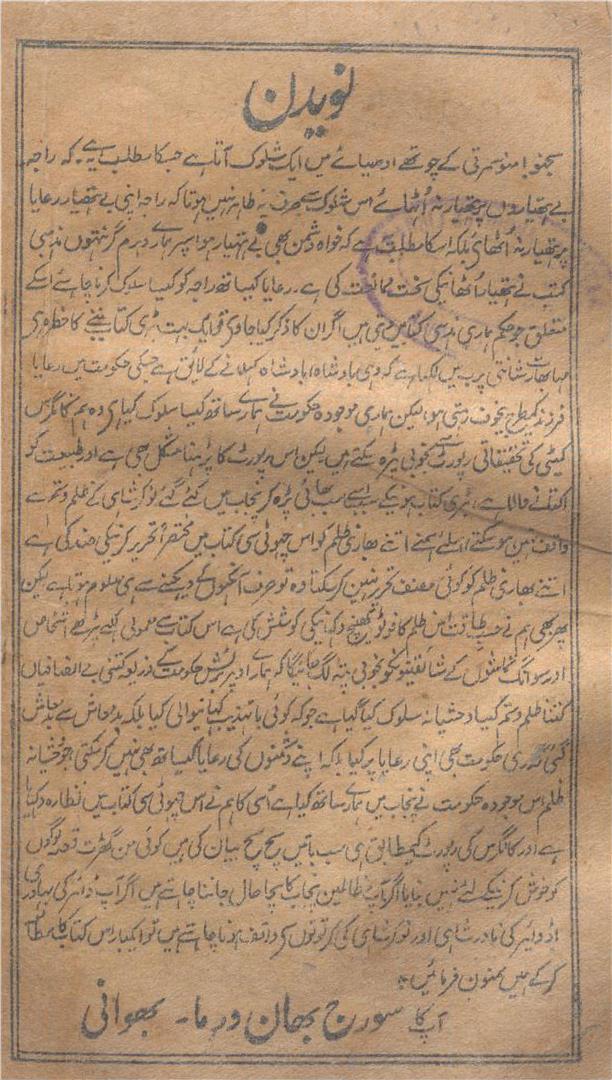 نویدن
سجنو! منو سمرتی کے چوتھے ادھیائے میں ایک شلوک آتا ہے جسکا مطلب یہ ہے۔ کہ راجہ
بے ہتھیاروں پر ہتھیار نہ اُٹھائے اس شلوک سے صرف یہ ظاہر نہیں ہوتا کہ راجہ اپنی بے ہتھیار رعایا
پر ہتھیار نہ اُٹھائے بلکہ اسکا مطلب ہے کہ خواہ دشمن بھی بے ہتھیار ہو اسپر ہمارے دہرم گرنتھوں مذہبی
کتب نے ہتھیار اُٹھانیکی سخت ممانعت کی ہے۔ رعایا کیساتھ راجہ کو کیسا سلوک کرنا چاہئے اسکے
متعلق جو حکم ہماری مذہبی کتابیں میں اگر ان کا ذکر کیا جاوے تو ایک بہت بڑی کتاب بننے کا خطرہ ہے
مہابھارت شانتی پرب میں لکھا ہے کہ وہی بادشاہ، بادشاہ کہلانے کے لائق ہے جسکی حکومت میں رعایا
فرزند کیطرح بیخوف رہتی ہو، لیکن ہماری موجودہ حکومت نے ہمارے ساتھ کیسا سلوک کیا ہے وہ ہم کانگرس
کمیٹی کی تحقیقاتی رپورٹ سے بخوبی پڑہ سکتے ہیں لیکن اس رپورٹ کا پڑہنا مشکل بھی ہے اور طبیعت کو
اکتانے والا ہے، بڑی کتاب ہونیکے سبب اسے سب بھائی پڑہ کر پنجاب میں کئے گئے نوکر شاہی کے ظلم و ستم سے
واقف نہیں ہو سکتے، اسلئے ہمنے اتنے بھاری ظلم کو اس چھوٹی سی کتاب میں مختصراً تحریر کرنیکی ضد کی ہے
اتنے بھاری ظلم کو کوئی مصنف تحریر نہیں کر سکتا وہ تو صرف آنکھوں سے دیکھنے سے ہی معلوم ہوتا ہے لیکن
پھر بھی ہم نے حسب طاقت اس ظلم کا فوٹو کھینچ دکہانیکی کوشش کی ہے اس کتاب سے معمولی لکھے پڑھے اشخاص
اور سوانگ تماشوں کے شائقینونکو بخوبی پتہ لگ جائیگا کہ ہمارے اوپر برٹش حکومت کے ذریعہ کتنی بے انصافیاں
کتنا ظلم و ستم کیسا وحشیانہ سلوک کیا گیا ہے جو کہ کوئی با تہذیب کہلانیوالی کیا بلکہ بدمعاش سے بدمعاش
گئی گذری حکومت بھی اپنی رعایا پر کیا بلکہ اپنے دشمنوں کی رعایا کیساتھ بھی نہیں کر سکتی جو وحشیانہ
ظلم اس موجودہ حکومت نے پنجاب میں ہمارے ساتھ کیا ہے اُسی کا ہم نے اس چھوٹی سی کتاب میں نظارہ دکہایا
ہے اور کانگرس کی رپورٹ کے مطابق ہی سب باتیں سچ سچ بیان کی ہیں کوئی من گھڑت قصہ لوگوں
کو خوش کرنیکے لئے نہیں بنایا اگر آپ مظالمین پنجاب کا سچا حال جاننا چاہتے ہیں اگر آپ ڈائر کی بہادری
اڈوائر کی نادر شاہی اور نوکر شاہی کی کرتوتوں سے واقف ہونا چاہتے ہیں تو ایکبار اس کتاب کا مطالعہ
کرکے ہمیں ممنون فرمائیں۔
آپ کا سورج بھان ورما۔ بھوانی